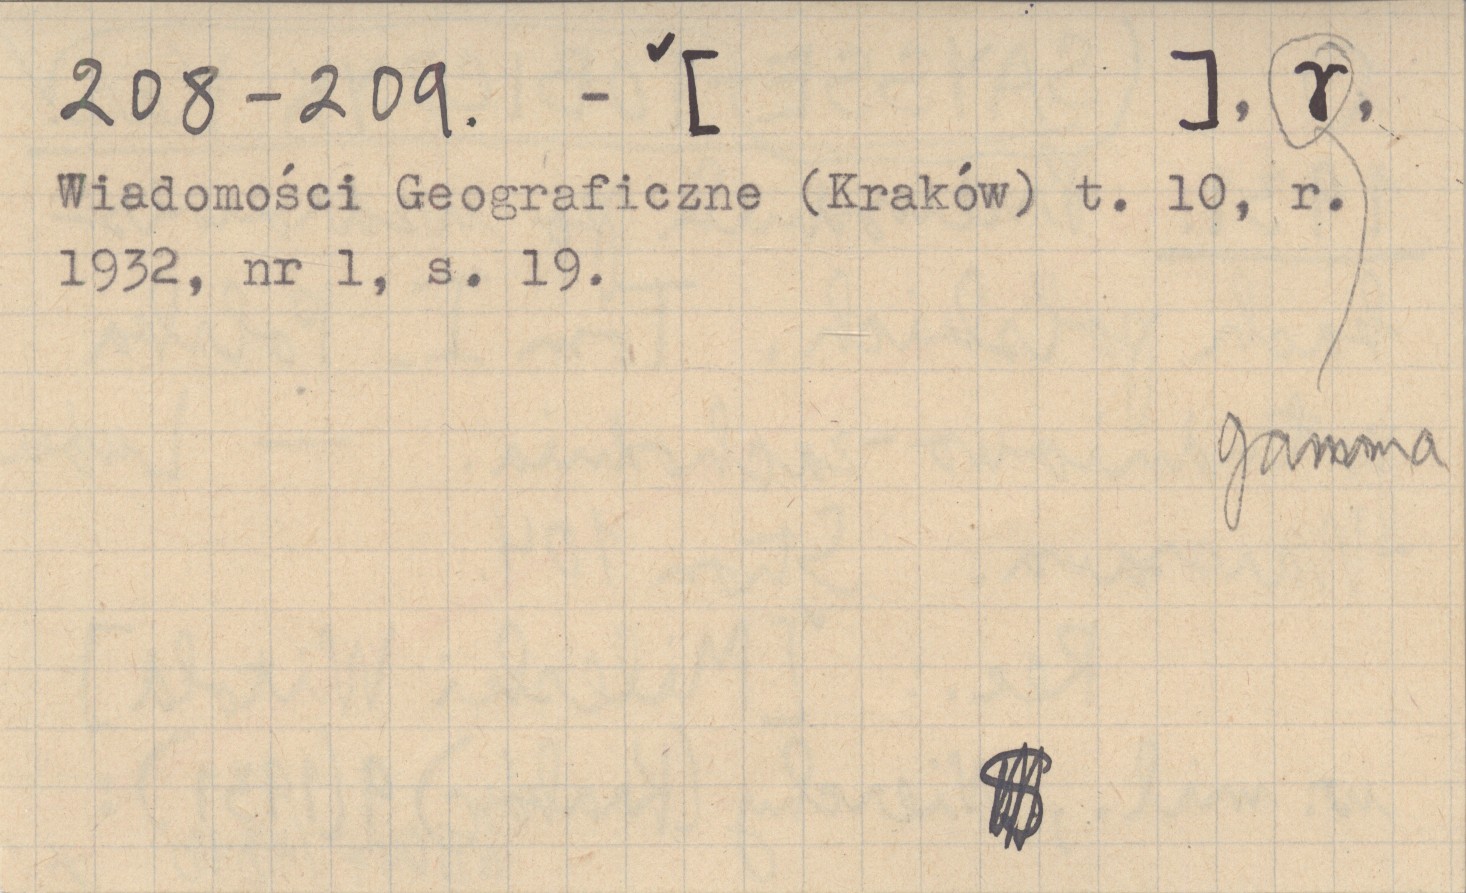 208-209. - [ ], γ,
Wiadomości Geograficzne (Kraków) t. 10, r.
1932, nr 1, s. 19.
gamma